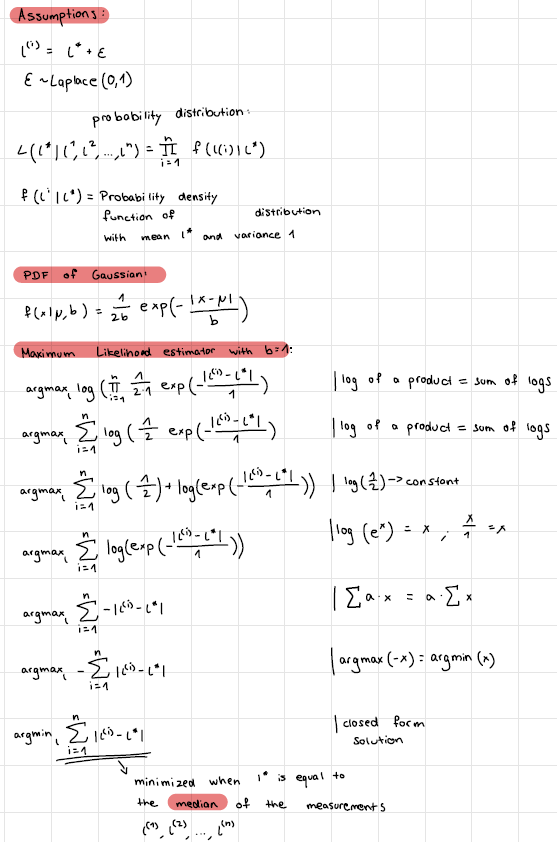 Assumptions:
l^(i) = l* + ε
ε ~ Laplace (0,1)
probability distribution:
L(l* | l^1, l^2, ..., l^n) = ∏_{i=1}^{n} f(l(i) | l*)
f(l^i | l*) = Probability density
function of distribution
with mean l* and variance 1
PDF of Gaussian:
f(x | μ, b) = 1/2b exp(- |x - μ|/b)
Maximum Likelihood estimator with b=1:
argmax_l log(∏_{i=1}^{n} 1/2·1 exp(- |l^(i) - l*|/1) | log of a product = sum of logs
argmax_l ∑_{i=1}^{n} log(1/2 exp(- |l^(i) - l*|/1) | log of a product = sum of logs
argmax_l ∑_{i=1}^{n} log(1/2) + log(exp(- |l^(i) - l*|/1)) | log(1/2) -> constant
argmax_l ∑_{i=1}^{n} log(exp(- |l^(i) - l*|/1)) | log(e^x) = x ; x/1 = x
argmax_l ∑_{i=1}^{n} - |l^(i) - l*| | ∑ a·x = a·∑ x
argmax_l - ∑_{i=1}^{n} |l^(i) - l*| | argmax(-x) = argmin(x)
argmin_l ∑_{i=1}^{n} |l^(i) - l*| | closed form
solution
minimized when l* is equal to
the median of the measurements
l^(1), l^(2), ..., l^(n)